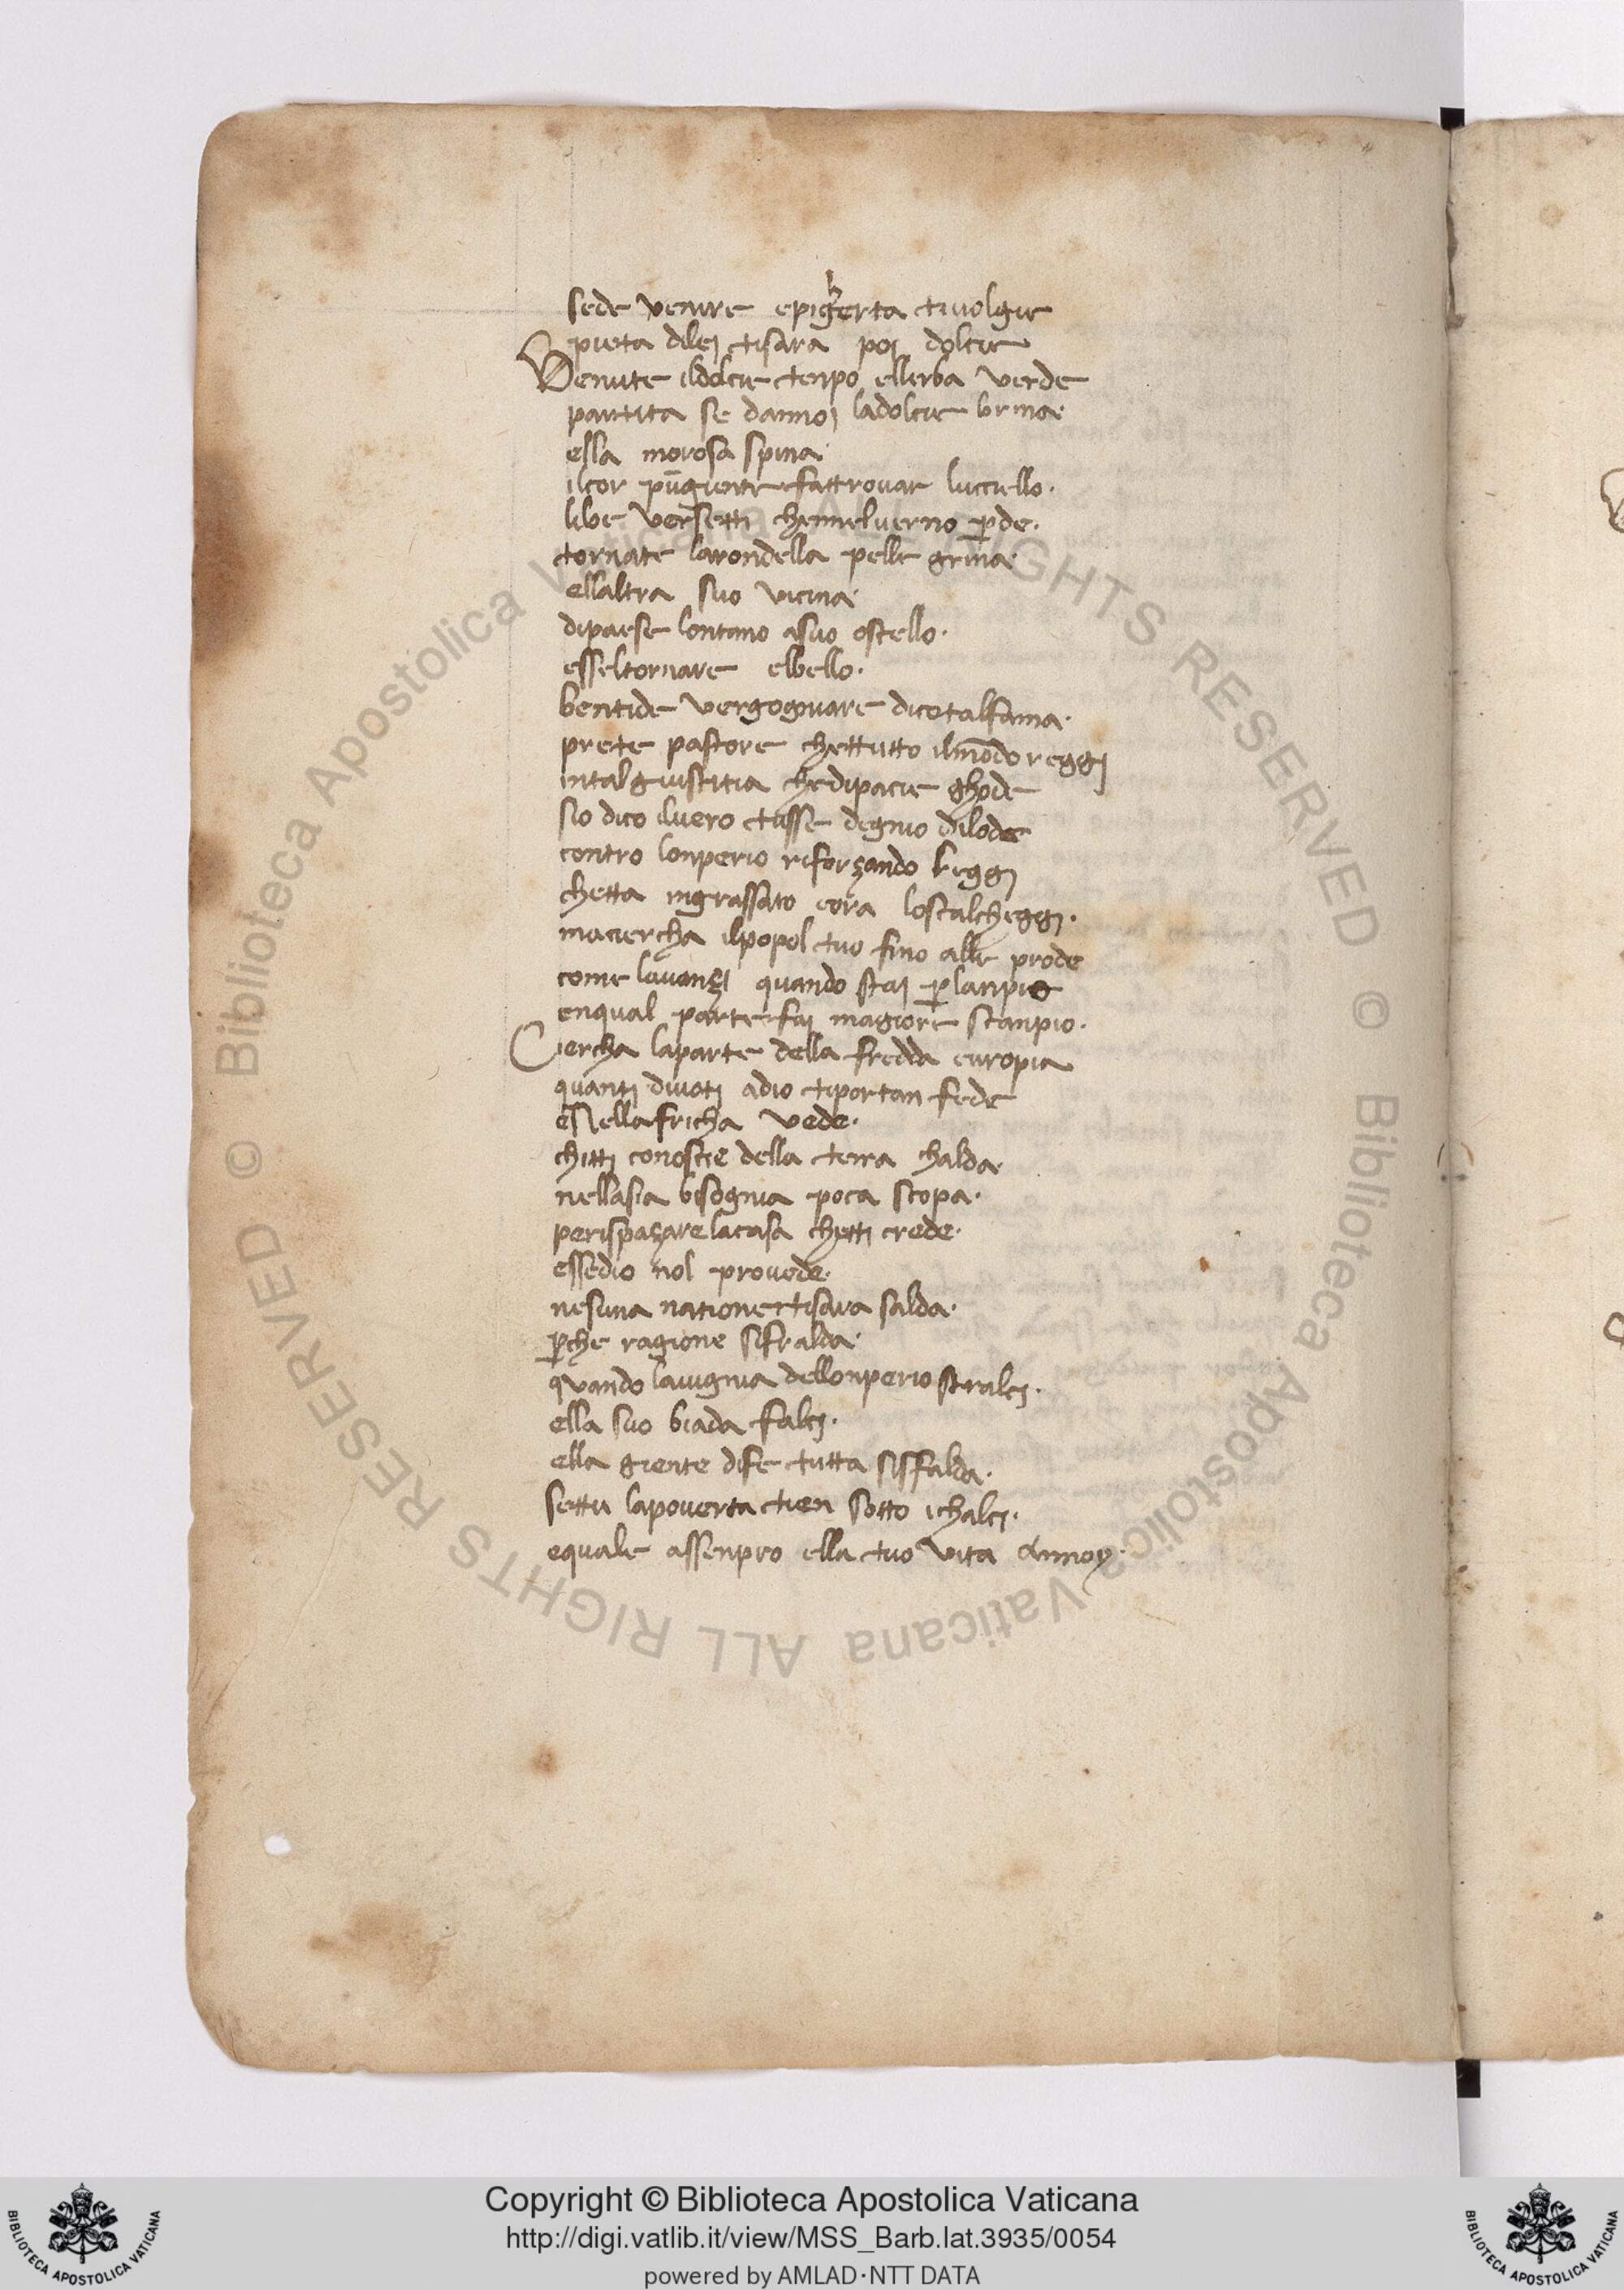 sede venire epigherta tivolgie
pieta dilej tisara poj dolcie
Venute ildolcie tenpo ellerba verde
partita se dannoj ladolcie brina
ella morosa spina
ilcor pūgiente fattrovar luccello.
libe versetti chennelverno ꝑde.
tornate larondella pelle grina
ellaltra suo vicina
dipaese lontano asuo ostello.
esseltornare elbello.
bentide vergognare dicotalfama.
prete pastore chettutto ilmōdo reggj
intal giustitia chedipacie ghode
sio dico ilvero tusse degnio dilode
contro lonperio riforzando leggj
chetta ingrassato eora loscalcheggj.
maciercha ilpopol tuo fino alle prode
come lavanzi quando staj ꝑlanpio
enqual parte faj magiore stanpio.
Ciercha laparte della fredda europia
quantj divotj adio tiportan fede
enellafricha vede.
chittj conoscie della terra chalda
nellasia bisognia poca scopa.
perispazare lacasa chettj crede.
essedio nol provede.
nesuna natione tisara salda.
ꝑche ragione sifralda.
quando lavignia dellonperio stralcj.
ella suo biada falcj.
ella giente dife tutta sisfalda.
settu lapoverta tien sotto ichalcj.
equale assenpro ella tuo vita annoy.
© Biblioteca Apostolica Vaticana ALL RIGHTS RESERVED © Biblioteca Apostolica Vaticana ALL RIGHTS RESERVED
BIBLIOTECA APOSTOLICA VATICANA
Copyright © Biblioteca Apostolica Vaticana
http://digi.vatlib.it/view/MSS_Barb.lat.3935/0054
powered by AMLAD·NTT DATA
BIBLIOTECA APOSTOLICA VATICANA